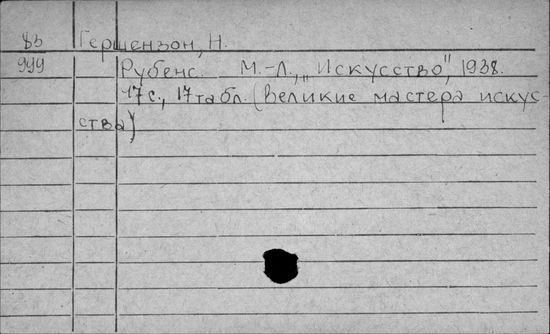 83 Гершензон, Н.
999 Рубенс. М.-Л., „Искусство", 1938.
47с., 17 табл. (Великие мастера искус-
ства)